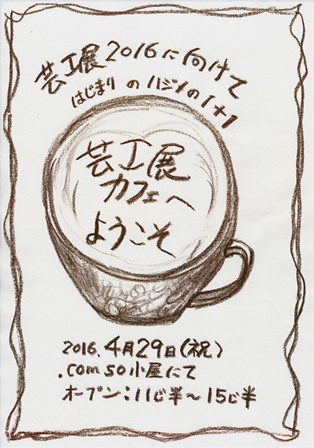 芸工展2016に向けて
はじまりのハジメの1+1
芸工展
カフェへ
ようこそ
2016.4月29日(祝)
.comso小屋にて
オープン:11じ半〜15じ半